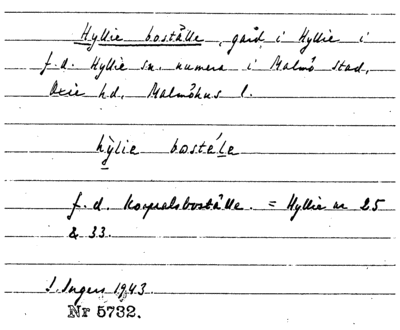 Hyllie boställe, gård i Hyllie i
f.d. Hyllie sn. numera i Malmö stad,
Oxie hd, Malmöhus l.
hỳlie bosté́le
f.d. Korpralsboställe. = Hyllie nr 25
& 33.
I. Ingers 1943.
Nr 5732.